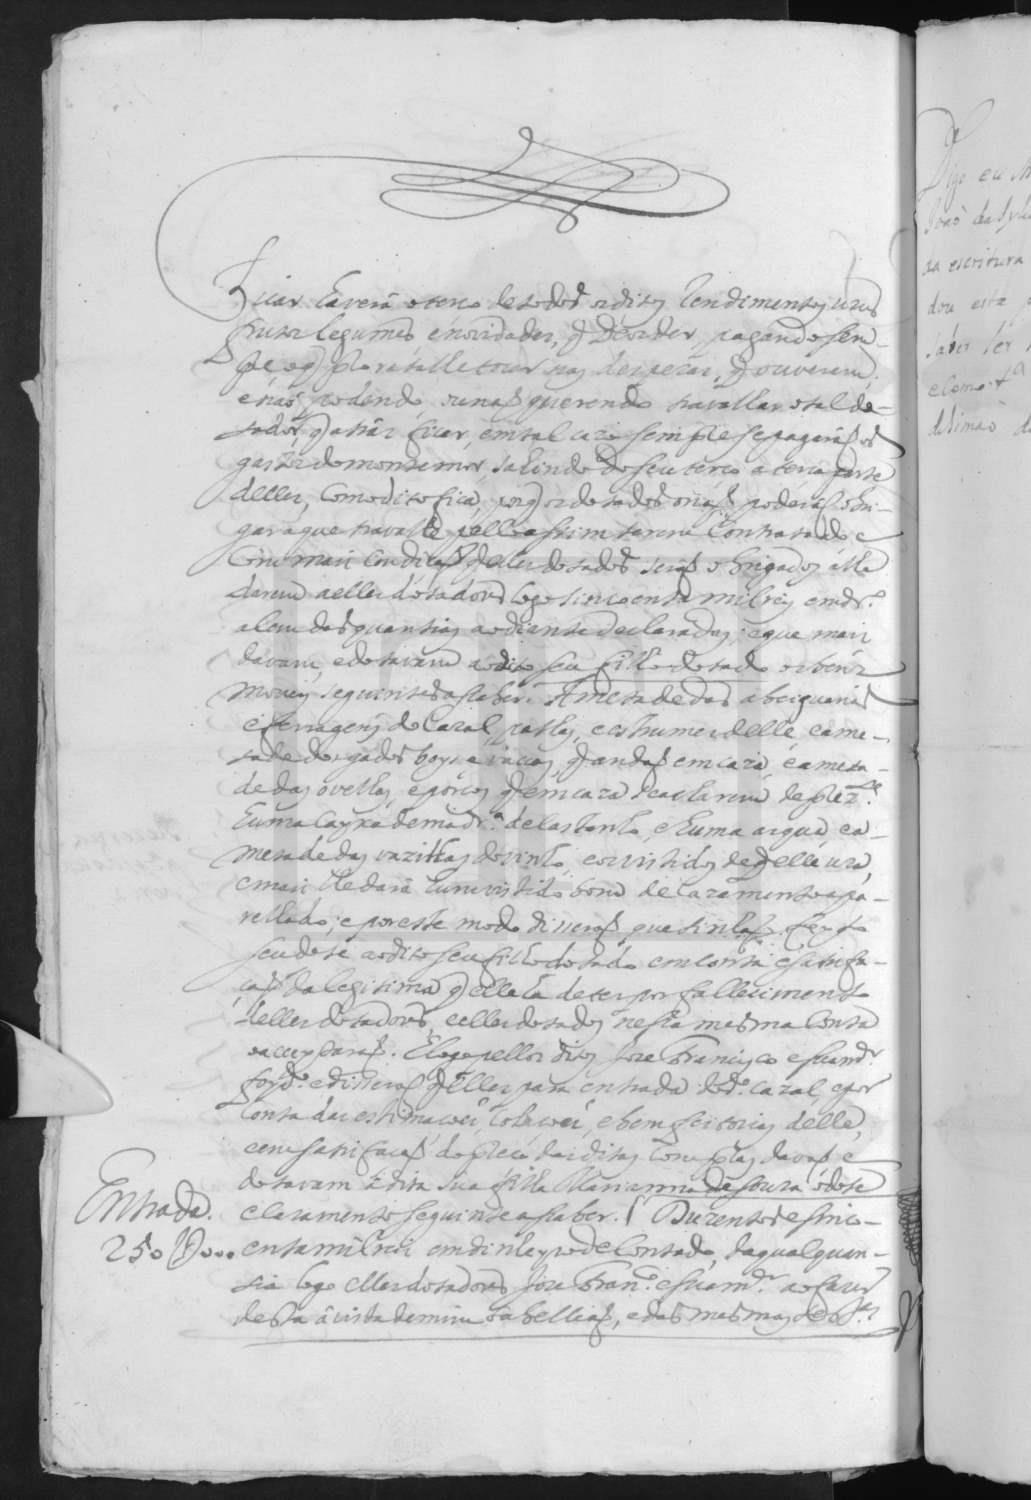 ficar haverá o terço de todos os ditos Rendimentos uvas
frutos legumes e novidades, q Deos der, pagando sem-
pre o q pro rata lhe tocar nas despezas, q ouverem
e não podendo ou não querendo travalhar o tal do-
tador, q atrás ficar, em tal cazo sempre se pagarão os
gastos do monte mor sahindo do seu terço a terça parte
delles, como dito fica, porq os dotados o não poderão obri-
gar a que travalhe pello assim terem Contratado e
Com mais Condição q elles dotados serão obrigados a lhe
darem a elles dotadores logo sincoenta mil reis em dr.o
alem das quantias ao diante declaradas; e que mais
davam, e dotavam ao dito seu filho dotado os bens
moveis seguintes a saber. A metade das
e ferragens do Cazal, palhas, e estrumes delle, e ame-
tade dos gados boys e vacas, q andão em caza, e a meta-
de das ovelhas, e porcos q em caza se acharem de prez.te
huma Cayxa de madr.a de castanho, e huma arqua, e a
metade das vazilhas do vinho, e os vistidos de q elle uza,
e mais lhe dará hum vistido bom de cazamento apa-
relhado; e por este modo disserão que tinhão feyto
seu dote ao dito seu filho dotado em conta e satisfa-
ção da legitima q elle ha de ter por fallecimento
delles dotadores, e elles dotados nesta mesma Conta
o aceytarão. E logo pellos ditos Joze Francisco e sua m.er
foy d.o e disserão q elles para entrada do d.o cazal, e por
conta das e bemfeitorias delle,
e em satisfação do preço das ditas davão e
dotavam á dita sua filha Marianna de Souza o dote
e cazamento seguinte a saber. Duzentos e sinco-
enta mil reis em dinheyro de Contado, da qual quan-
tia logo elles dotadores Joze Fran.co e sua m.er ao fazer
desta á vista de mim tabellião, e das mesmas
Entrada.
250 U000
Digo eu
João da Sylv
da escritura
dou esta
saber ler
e como t.a
de Simão